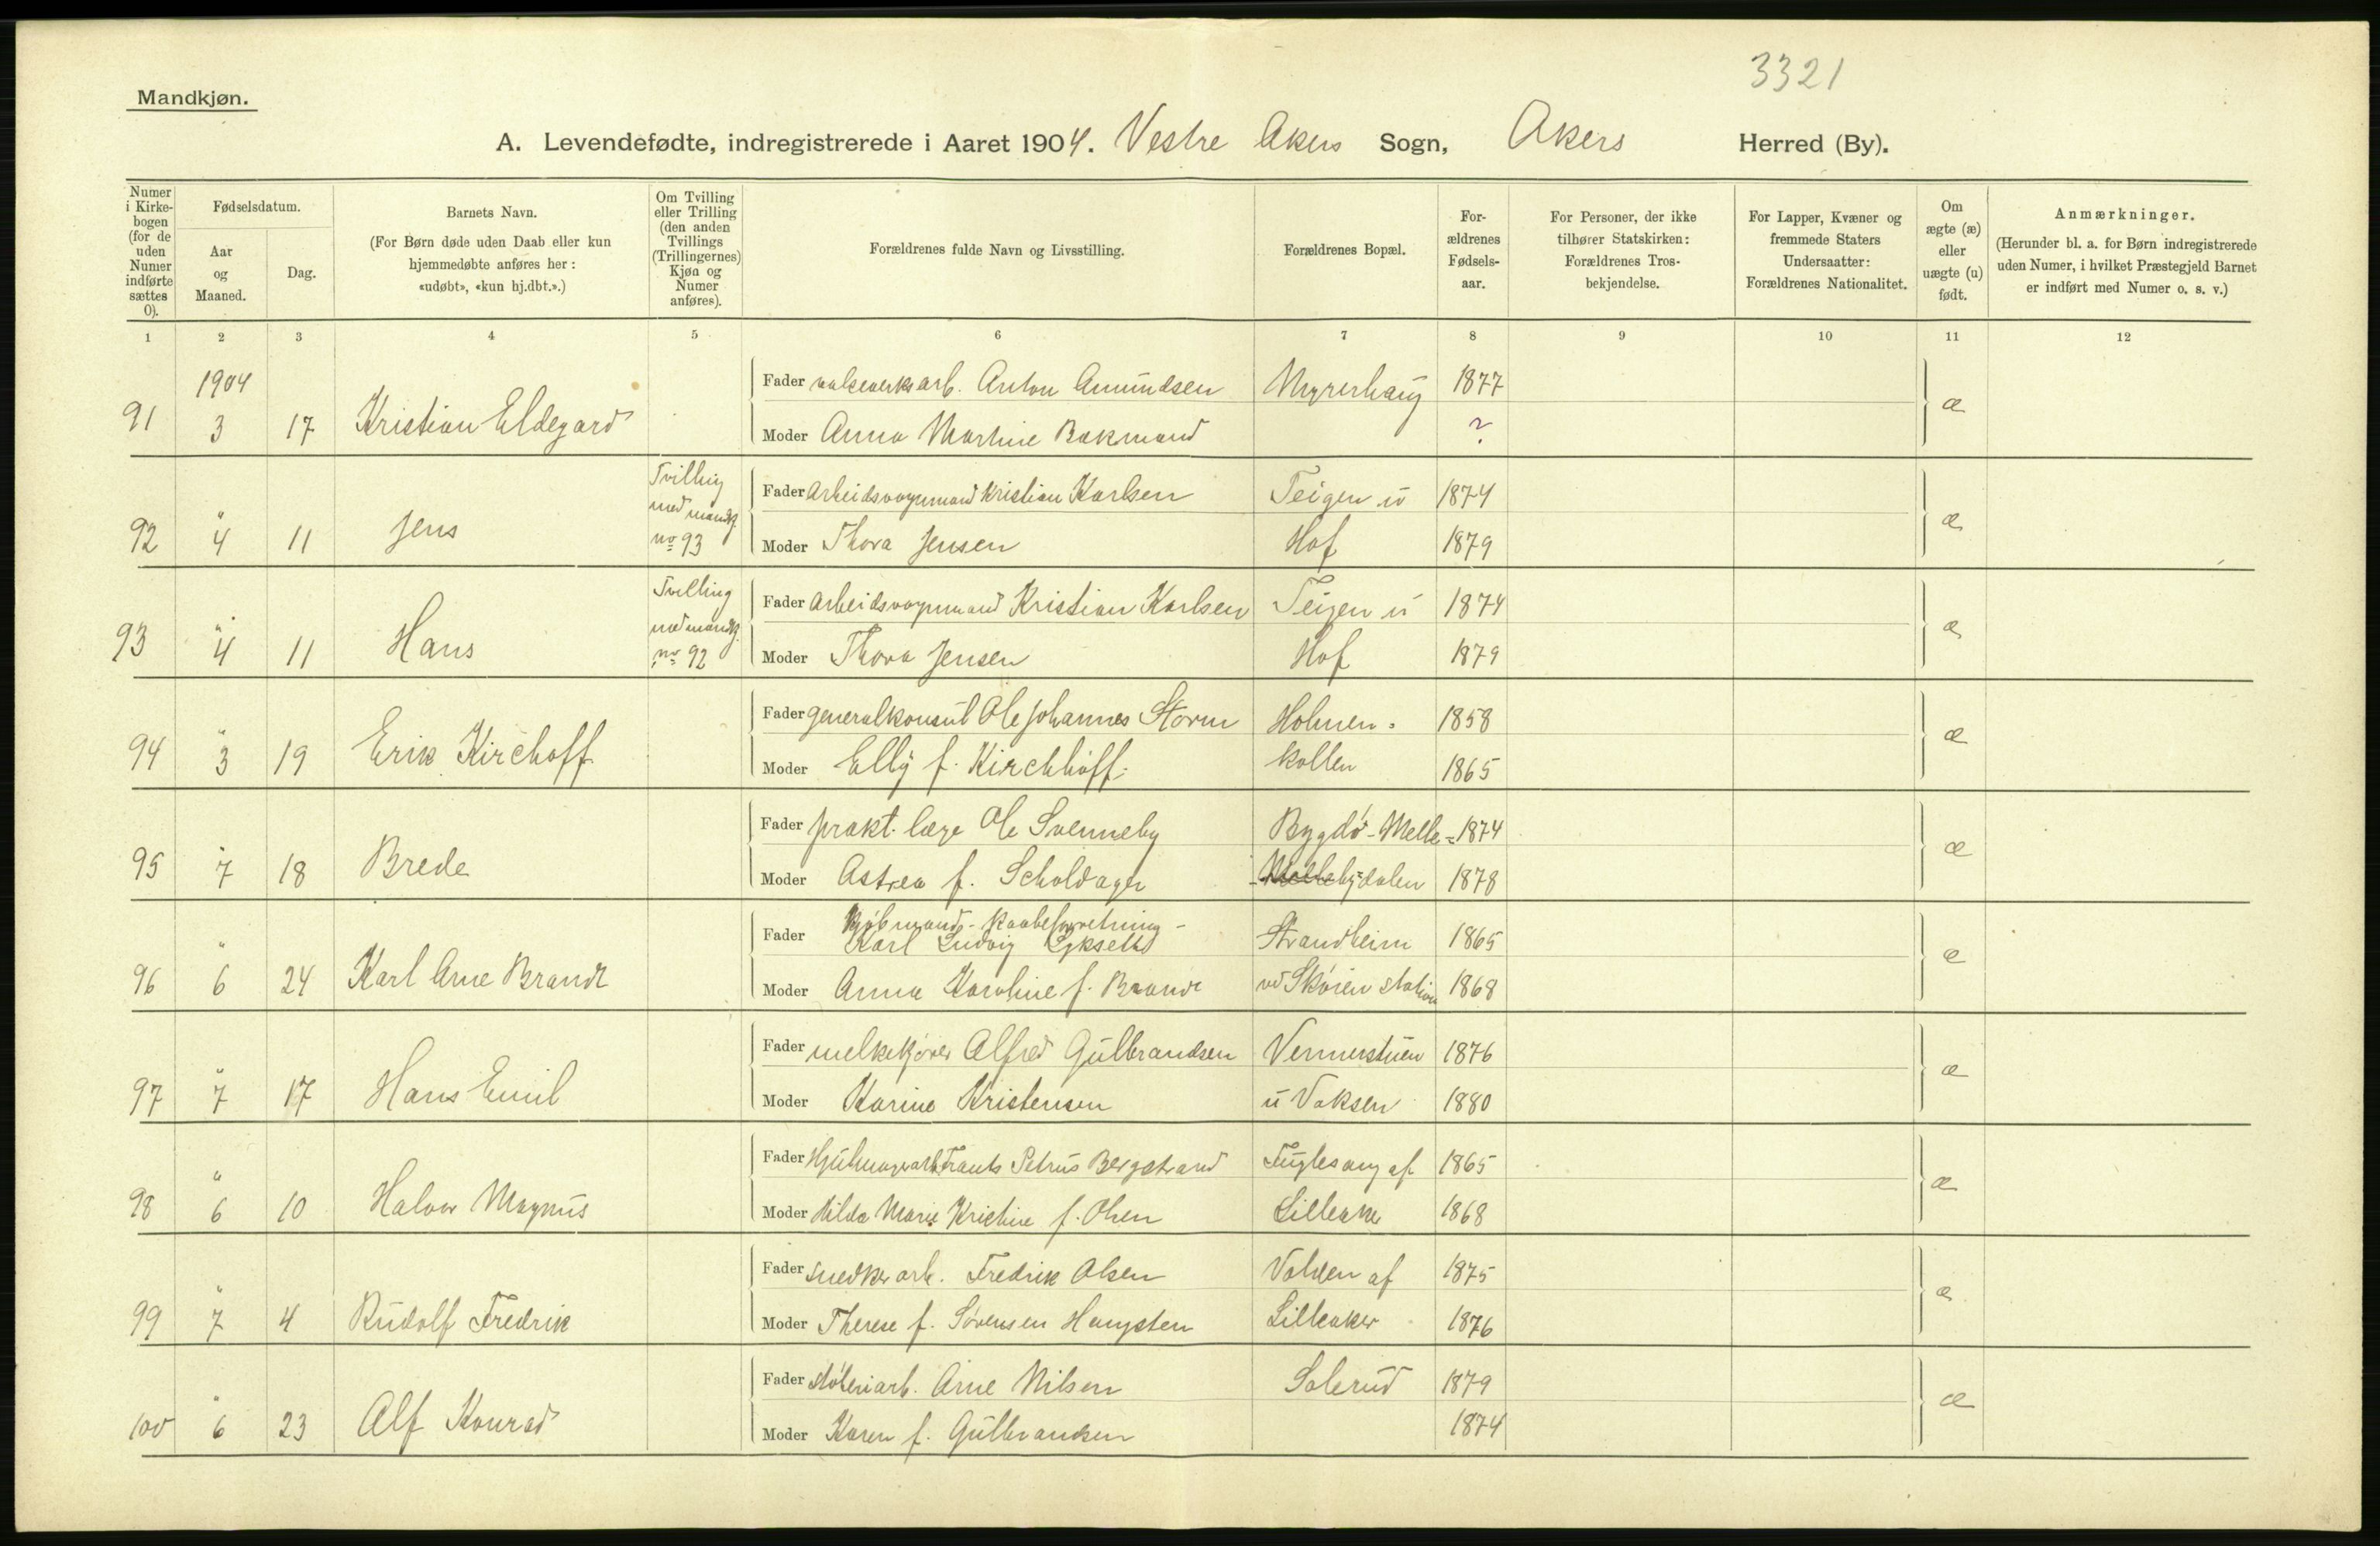 3321
Mandkjøn.
A. Levendefødte, indregistrerede i Aaret 1904. Vestre Akers Sogn, Akers Herred (By).
Numer i Kirkebogen (for de uden Numer indførte sættes 0).
Fødselsdatum.
Aar og Maaned.
Dag.
Barnets Navn.
(For Børn døde uden Daab eller kun hjemmedøbte anføres her: «udøbt», «kun hj.dbt.».)
Om Tvilling eller Trilling (den anden Tvillings (Trillingernes) Kjøn og Numer anføres).
Forældrenes fulde Navn og Livsstilling.
Forældrenes Bopæl.
Forældrenes Fødselsaar.
For Personer, der ikke tilhører Statskirken: Forældrenes Trosbekjendelse.
For Lapper, Kvæner og fremmede Staters Undersaatter: Forældrenes Nationalitet.
Om ægte (æ) eller uægte (u) født.
Anmærkninger.
(Herunder bl. a. for Børn indregistrerede uden Numer, i hvilket Præstegjeld Barnet er indført med Numer o. s. v.)
1 2 3 4 5 6 7 8 9 10 11 12
1904
Fader valseverksarb. Anton Amundsen Myrerhaug 1877
91 3 17 Kristian Eldegard æ
Moder Anna Martine Bakmand ?
Tvilling med mandkj. no 93
Fader Arbeidsvognmand Kristian Karlsen Teigen u 1874
92 " 4 11 Jens æ
Moder Thora Jensen Hof 1879
Tvilling med mandkj. no 92
Fader Arbeidsvognmand Kristian Karlsen Teigen u 1874
93 " 4 11 Hans æ
Moder Thora Jensen Hof 1879
Fader generalkonsul Ole Johannes Storm Holmen- 1858
94 " 3 19 Erik Kirchoff æ
Moder Elly f. Kirchhoff kollen 1865
Fader prakt. læge Ole Svenneby Bygdø-Melle- 1874
95 " 7 18 Brede æ
Moder Astrea f. Scholdager bydalen 1878
Kjøbmand-kaabeforretning-
Fader Karl Ludvig Strandheim 1865
96 " 6 24 Karl Arne Brandt æ
Moder Anna Karoline f. Brandt ved Skøien station 1868
Fader melkekjører Alfred Gulbrandsen Vennerstuen 1876
97 " 7 17 Hans Emil æ
Moder Karine Kristensen u Voksen 1880
Fader Frants Petrus Bergstrand Fuglesang af 1865
98 " 6 10 Halvor Magnus æ
Moder Hilda Marie Kristine f. Olsen Lilleaker 1868
Fader snedkerarb. Fredrik Olsen Volden af 1875
99 " 7 4 Rudolf Fredrik æ
Moder Therese f. Sørensen Haugsten Lilleaker 1876
Fader støberiarb. Arne Nilsen Solerud 1879
100 " 6 23 Alf Konrad æ
Moder Karen f. Gulbrandsen 1874